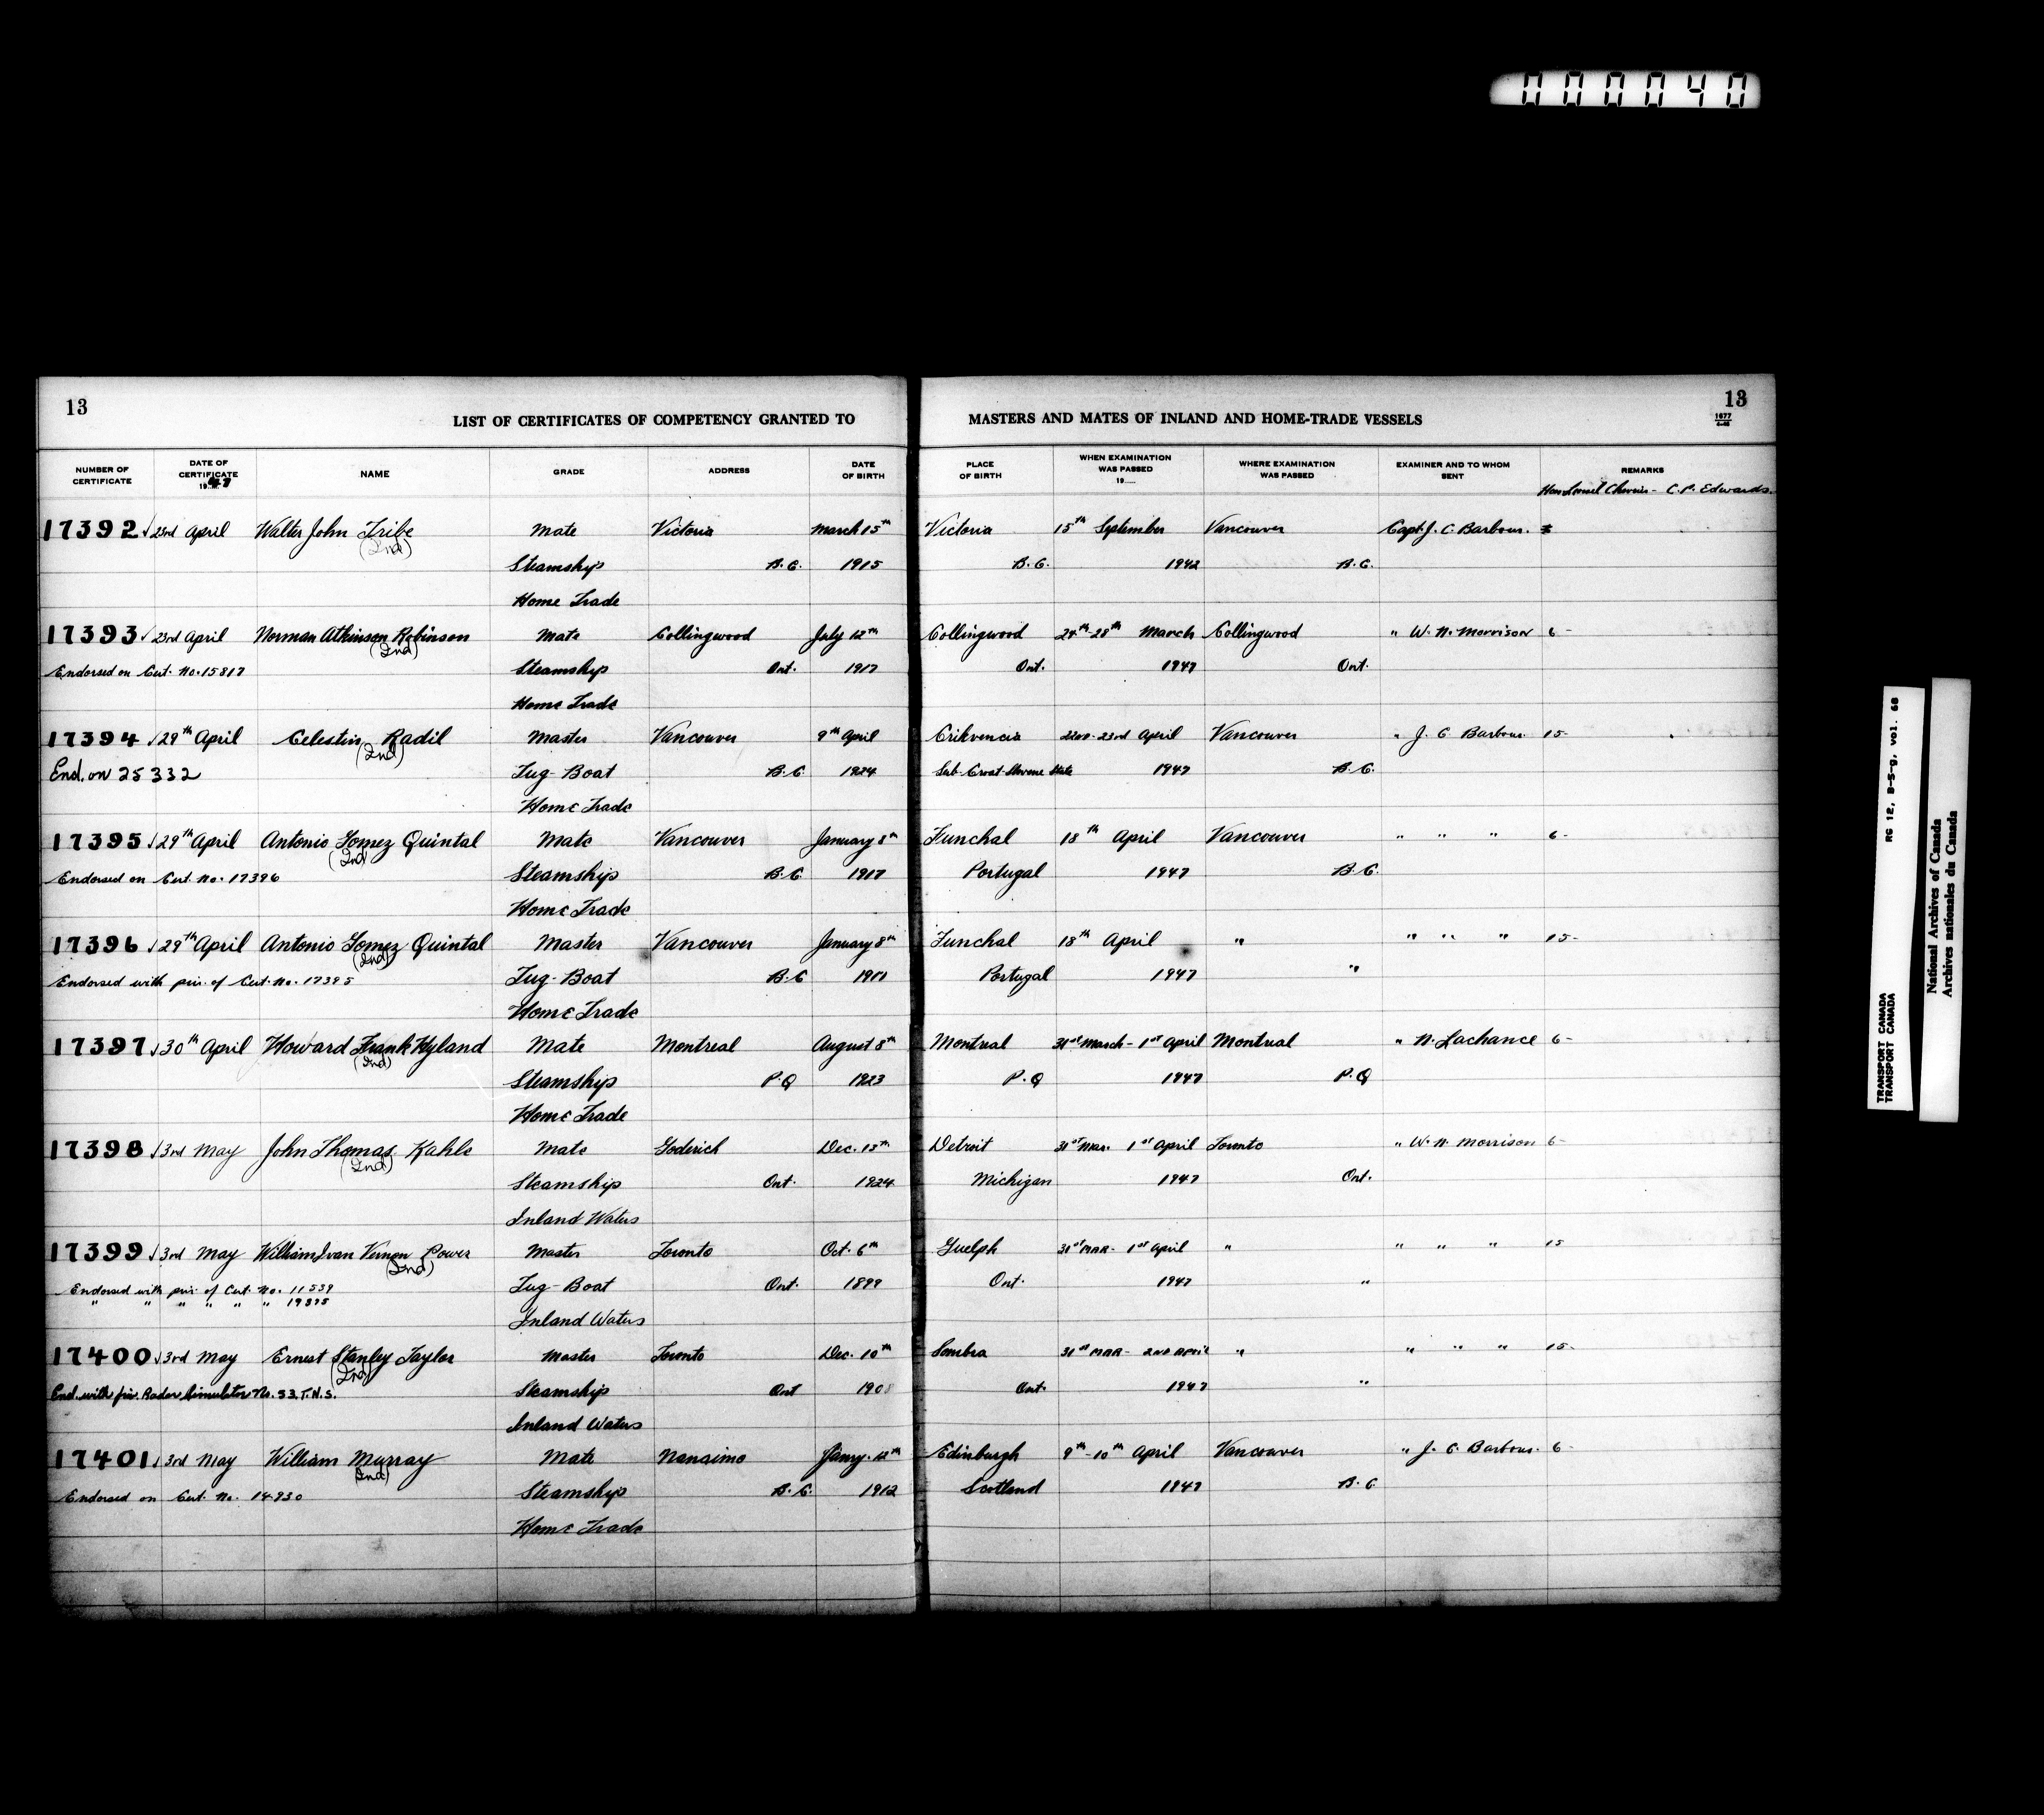 000040
13
LIST OF CERTIFICATES OF COMPETENCY GRANTED TO MASTERS AND MATES OF INLAND AND HOME-TRADE VESSELS
13
1677
NUMBER OF CERTIFICATE DATE OF CERTIFICATE 1947 NAME GRADE ADDRESS DATE OF BIRTH PLACE OF BIRTH WHEN EXAMINATION WAS PASSED 19...... WHERE EXAMINATION WAS PASSED EXAMINER AND TO WHOM SENT REMARKS
C. P. Edwards.
17392 √ 23rd April Walter John Tribe Mate Victoria March 15th Victoria 15th September Vancouver Capt. J. C. Barbour.
(Ind)
Steamship B.C. 1915 B.C. 1942 B.C.
Home Trade
17393 √ 23rd April Norman Atkinson Robinson Mate Collingwood July 12th Collingwood 24th-28th March Collingwood " W. N. Morrison 6-
(Ind)
Endorsed on Cert. No. 15817 Steamship Ont. 1917 Ont. 1947 Ont.
Home Trade
17394 √ 29th April Celestin Radil Master Vancouver 9th April Crikvencia 22nd-23rd April Vancouver " J. C. Barbour 15-
(Ind)
End. on 25332 Tug-Boat B.C. 1924 Serb-Croat-Slovene State 1947 B.C.
Home Trade
17395 √ 29th April Antonio Gomez Quintal Mate Vancouver January 8th Funchal 18th April Vancouver " " " 6-
(Ind)
Endorsed on Cert. No. 17396 Steamship B.C. 1917 Portugal 1947 B.C.
Home Trade
17396 √ 29th April Antonio Gomez Quintal Master Vancouver January 8th Funchal 18th April " " " " 15-
(Ind)
Endorsed with priv. of Cert. No. 17395 Tug-Boat B.C 1917 Portugal 1947 "
Home Trade
17397 √ 30th April Howard Frank Hyland Mate Montreal August 8th Montreal 31st March - 1st April Montreal " N. Lachance 6-
(Ind)
Steamship P.Q 1923 P.Q 1947 P.Q
Home Trade
17398 √ 3rd May John Thomas Kahle Mate Goderich Dec. 13th Detroit 31st Mar. 1st April Toronto " W. N. Morrison 6-
(Ind)
Steamship Ont. 1924 Michigan 1947 Ont.
Inland Waters
17399 √ 3rd May William Ivan Vernon Power Master Toronto Oct. 6th Guelph 31st MAR- 1st April " " " " 15
(Ind)
Endorsed with priv. of Cert. No. 11539 Tug-Boat Ont. 1899 Ont. 1947 "
" " " " " " 19375
Inland Waters
17400 √ 3rd May Ernest Stanley Taylor Master Toronto Dec. 10th Sombra 31st MAR- 2nd April " " " " 15-
(Ind)
End. with priv. Radar Simulator No. 33. T.N.S. Steamship Ont 1908 Ont. 1947 "
Inland Waters
17401 √ 3rd May William Murray Mate Nanaimo Jany. 12th Edinburgh 9th-10th April Vancouver " J. C. Barbour. 6-
(Ind)
Endorsed on Cert. No. 14930 Steamship B.C. 1912 Scotland 1947 B.C
Home Trade
TRANSPORT CANADA RG 12, B-5-g, vol. 68
TRANSPORT CANADA
National Archives of Canada
Archives nationales du Canada